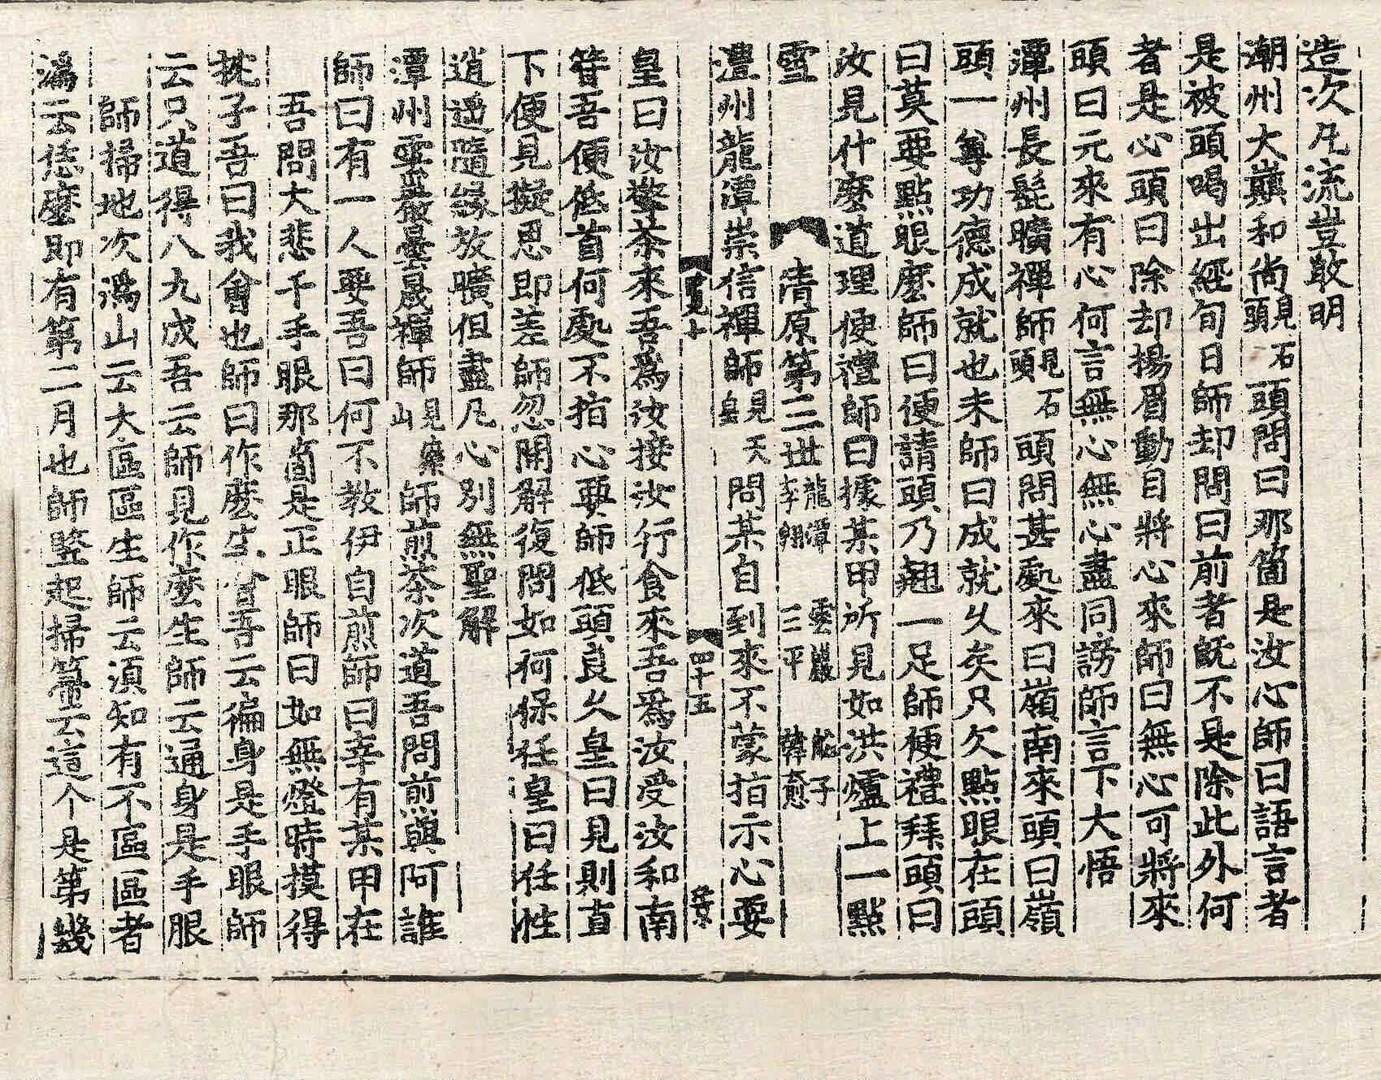 造次凡流豈敢明
潮州大巔和尚見石頭 頭問曰那箇是汝心師曰語言者
是被頭喝出經旬日師却問曰前者旣不是除此外何
者是心頭曰除却揚眉動目將心來師曰無心可將來
頭曰元來有心何言無心無心盡同謗師言下大悟
潭州長髭曠禪師見石頭 頭問甚處來曰嶺南來頭曰嶺
頭一尊功德成就也未師曰成就久矣只欠點眼在頭
曰莫要點眼麽師曰便請頭乃翹一足師便禮拜頭曰
汝見什麽道理便禮師曰據某甲所見如洪爐上一點
雪 清原第三世 龍潭 李翶 雲巖 三平 船子 韓愈
澧州龍潭崇信禪師見天皇 問某自到來不蒙指示心要
四十五
皇曰汝擎茶來吾爲汝接汝行食來吾爲汝受汝和南
時吾便低首何處不指心要師低頭良久皇曰見則直
下便見擬思即差師忽開解復問如何保任皇曰任性
逍遥隨緣放曠但盡凡心別無聖解
潭州雲巖曇晟禪師見藥山 師煎茶次道吾問煎與阿誰
師曰有一人要吾曰何不教伊自煎師曰幸有某甲在
吾問大悲千手眼那箇是正眼師曰如無燈時摸得
枕子吾曰我會也師曰作麽生會吾云徧身是手眼師
云只道得八九成吾云師見作麽生師云通身是手眼
師掃地次潙山云大區區生師云須知有不區區者
潙云恁麽即有第二月也師竪起掃箒云這个是第幾